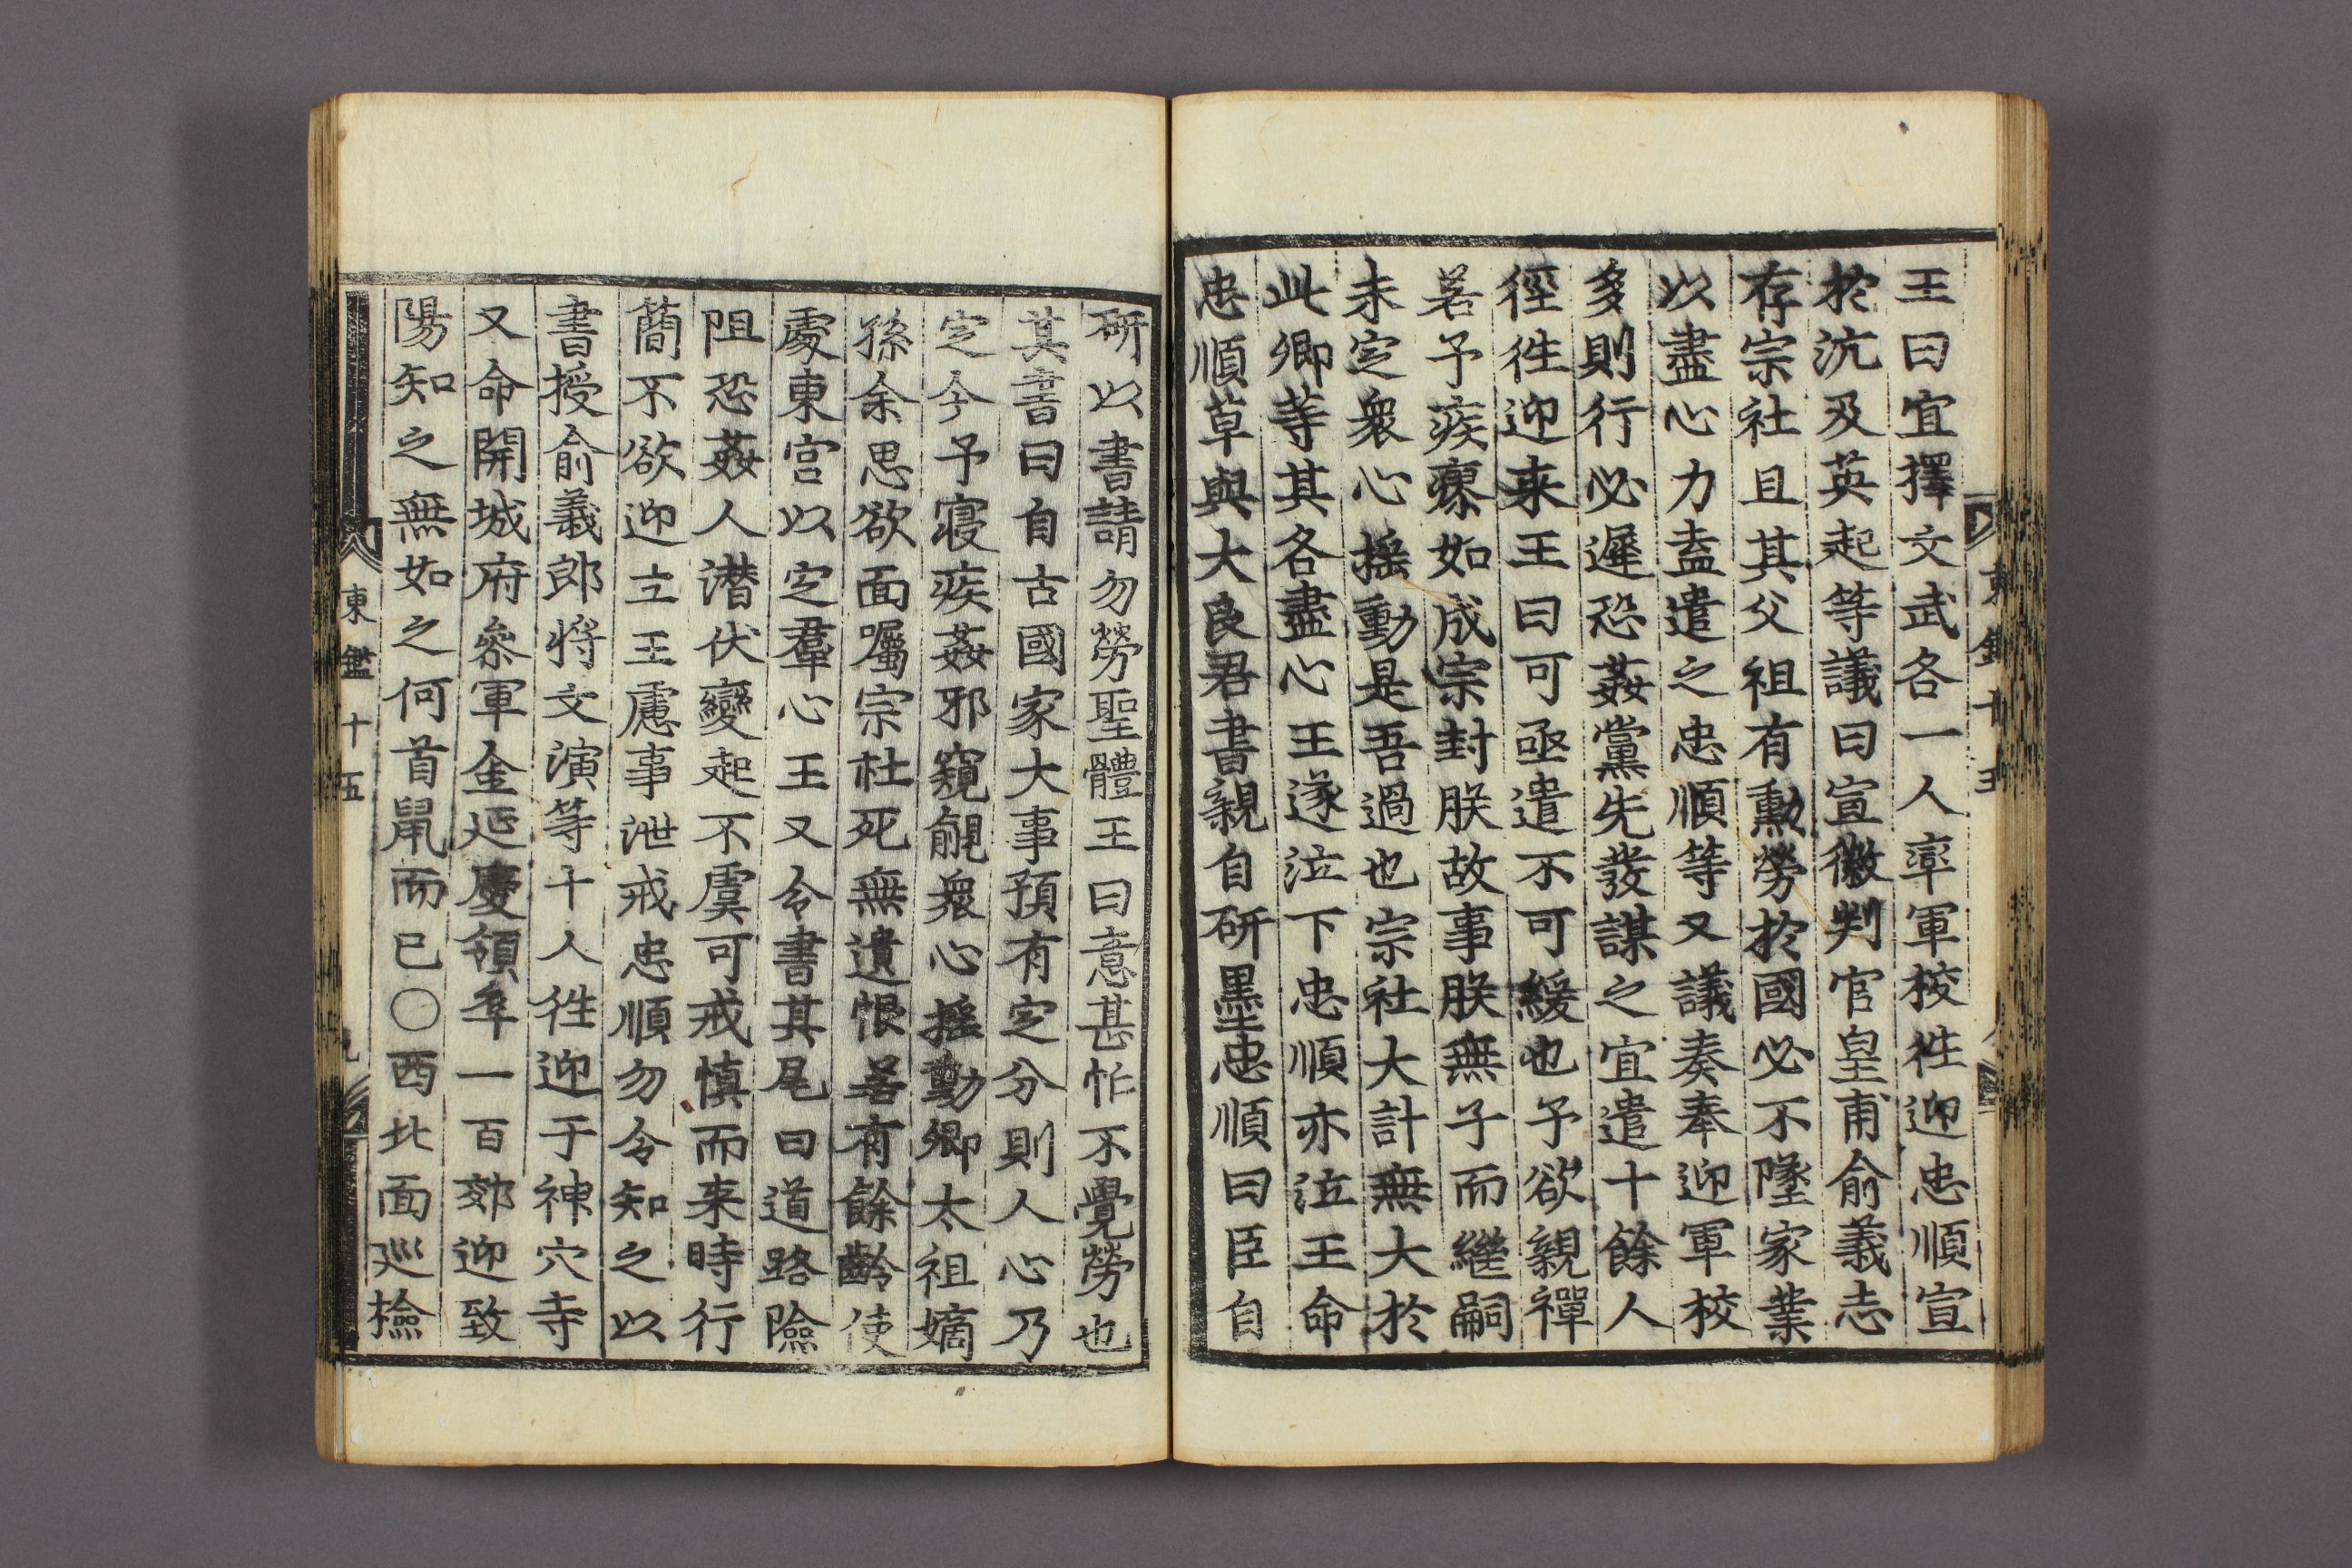 王曰宜擇文武各一人率軍校徃迎忠順宣
於沆及英起等議曰宣徽判官皇甫俞義志
存宗社且其父祖有勳勞於國必不墜家業
以盡心力盍遣之忠順等又議奏奉迎軍校
多則行必遲恐姦黨先發謀之宜遣十餘人
徑徃迎来王曰可亟遣不可緩也予欲親禪
若予疾瘳如成宗封朕故事朕無子而繼嗣
未定衆心搖動是吾過也宗社大計無大於
此卿等其各盡心王遂泣下忠順亦泣王命
忠順草與大良君書親自研墨忠順曰臣自
東鑑十五
研以書請勿勞聖體王曰意甚忙不覺勞也
其書曰自古國家大事預有定分則人心乃
定今予寢疾姦邪窺覦衆心搖動卿太祖嫡
孫余思欲面囑宗社死無遺恨若有餘齡使
處東宮以定羣心王又令書其尾曰道路險
阻恐姦人潜伏變起不虞可戒慎而来時行
簡不欲迎立王慮事泄戒忠順勿令知之以
書授俞義郎將文演等十人徃迎于神穴寺
又命開城府叅軍金延慶領卒一百郊迎致
陽知之無如之何首鼠而已〇西北面巡撿
東鑑十五